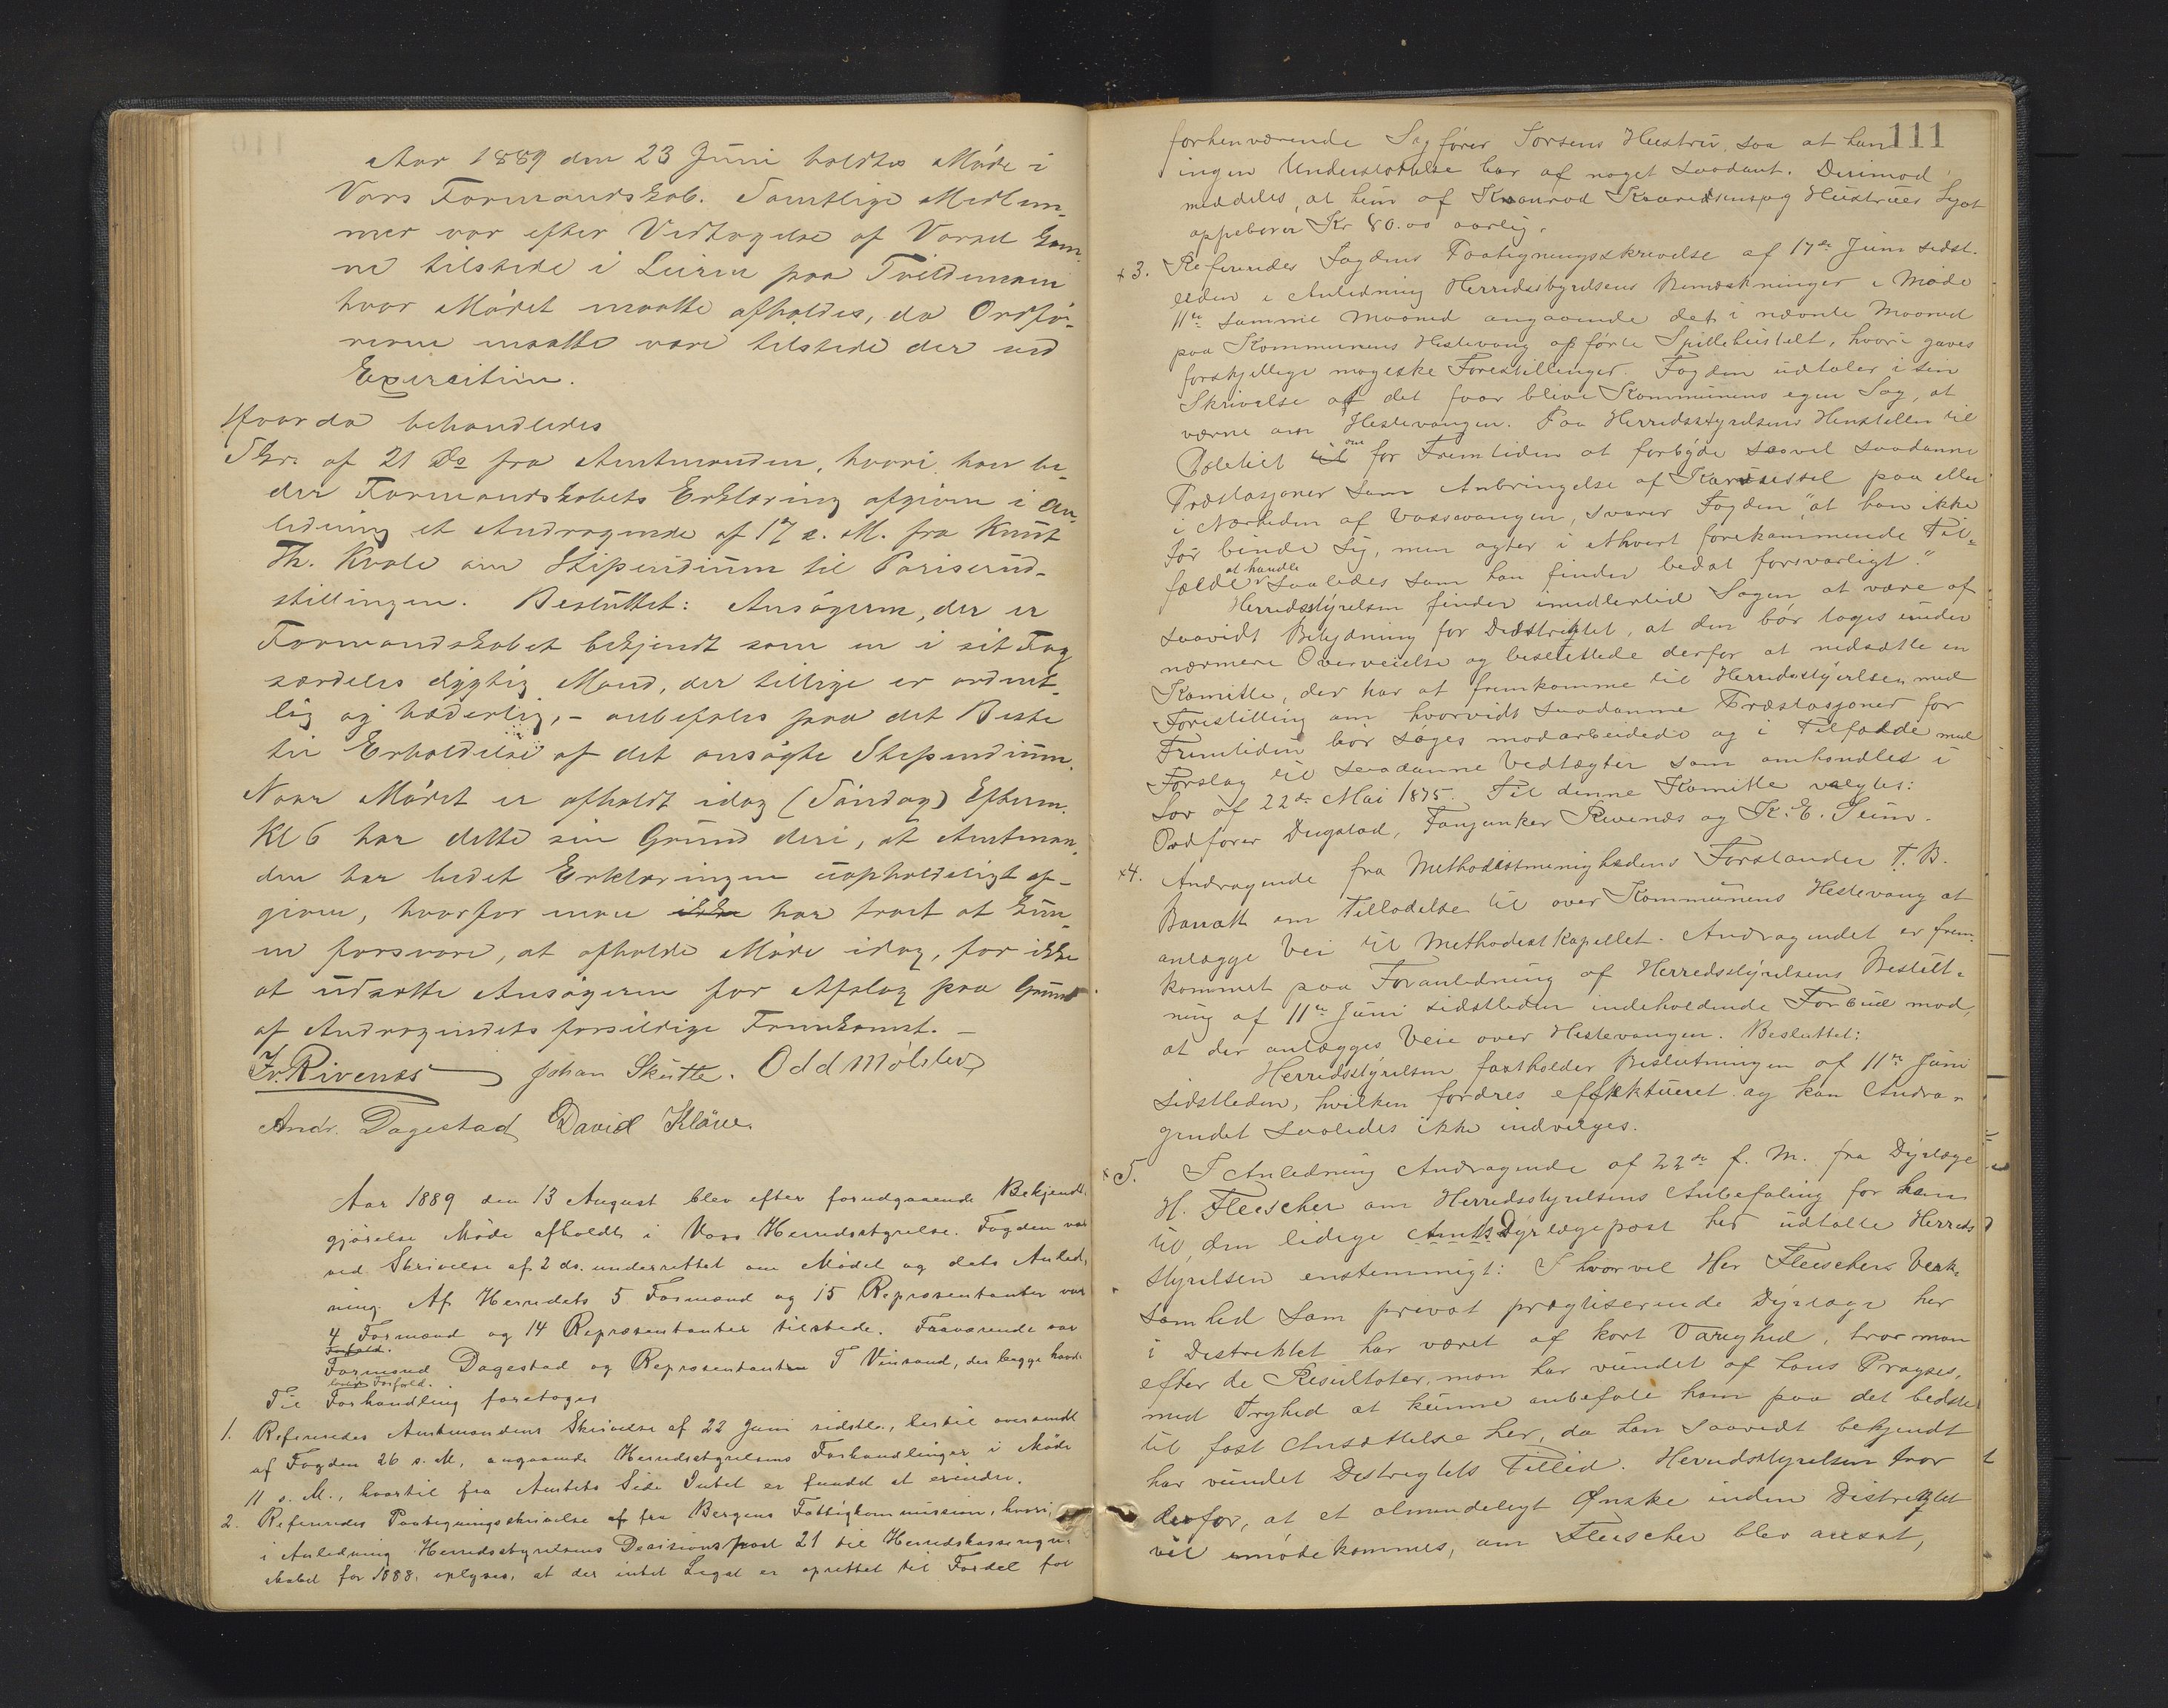 Aar 1889 den 23 Juni holdtes Møde i
Vors Formandskab. Samtlige Medlem-
mer var efter Vedtagelse af Varsel kom-
ne tilstede i Leiren paa Tvildemoen
hvor Mødet maatte afholdes, da Ordfø-
reren maatte være tilstede der ved
Exersitien.
Hvor da behandledes
Skr. af 21 Ds fra Amtmanden, hvori han be-
der Formandskabets Erklæring afgiven i An-
ledning et Andragende af 17 s. M. fra Knut
Th. Kvale om Stipendium til Pariserud-
stillingen. Besluttet: Ansøgeren, der er
Formandskabet bekjendt som en i sit Fag
særdeles dygtig Mand, der tillige er ordent-
lig og hæderlig, - anbefales paa det Beste
til Erholdelse af det ansøgte Stependium.
Naar Mødet er afholdt idag (Søndag) Efterm.
Kl 6 har dette sin Grund deri, at Amtman-
den har bedet Erklæringen uopholdeligt af-
given, hvorfor man ikke har troet at kun-
ne forsvare, at afholde Møde idag, for ikke
at udsætte Ansøgeren for Afslag paa Grund
af Andragendets forsildige Fremkomst. -
Fr. Rivenæs Johan Skutle. Odd Mølster
Andr. Dagestad David Kløve.
Aar 1889 den 13 August blev efter forudgaaende Bekjendt-
gjørelse Møde afholdt i Voss Herredsstyrelse. Fogden var
ved Skrivelse af 2 ds. underrettet om Mødet og dets Anled-
ning. Af Herredets 5 Formænd og 15 Repræsentanter var
4 Formænd og 14 Repræsentanter tilstede. Fraværende var
Forfald.
Formand Dagestad og Repræsentanten T Vinsand, der begge havde
lovl. Forfald.
Til Forhandling foretoges
1. Refereredes Amtmandens Skrivelse af 22 Juni sidstl., hertil oversendt
af Fogden 26 s. M, angaaende Herredsstyrelsens Forhandlinger i Møde
11 s. M., hvortil fra Amtets Side Intet er fundet at erindre.
2. Refereredes Paategningsskrivelse af fra Bergens Fattigkommission, hvori,
i Anledning Herredsstyrelsens Decisionspost 21 til Herredskasseregn-
skabet for 1888, oplyses, at der intet Legat er oprettet til Fordel for
111
forhenværende Sagfører Torsens Hustru, saa at hun
ingen Understøttelse har af noget saadant. Derimod
meddeles, at hun af Konrad Kaaredsens og Hustrues Legat
oppebærer Kr 80.00 aarlig.
+3. Refereredes Fogdens Paategningsskrivelse af 17de Juni sidst-
leden i Anledning Herredsstyrelsens Bemærkninger i Møde
11te samme Maaned angaaende det i nævnte Maaned
paa Kommunens Hestevang opførte Spillehustelt, hvori gaves
forskjellige mageske Forestillinger. Fogden udtaler i sin
Skrivelse at det faar blive Kommunens egen Sag, at
værne om Hestevangen. Paa Herredsstyrelsens Henstillen til
Politiet til om for Fremtiden at forbyde saavel saadanne
Præstasjoner som Anbringelse af Karussel paa eller
i Nærheden af Vossevangen, svarer Fogden, "at han ikke
tør binde sig, men agter i ethvert forekommende Til-
fælde at handle saaledes som han finder bedst forsvarligt."
Herredsstyrelsen finder imidlertid Sagen at være af
saavidt Betydning for Distriktet, at den bør tages under
nærmere Overveielse og besluttede derfor at nedsætte en
Komitte, der har at fremkomme til Herredsstyrelsen med
Forestilling om hvorvidt saadanne Præstasjoner for
Fremtiden bør søges modarbeidede og i Tilfælde med
Forslag til saadanne Vedtægter som omhandles i
Lov af 22de Mai 1875. Til denne Komitte valgtes:
Ordfører Dugstad, Fanjunker Rivenæs og K. E. Seim.
x4. Andragende fra Methodistmenighedens Forstander T. B.
Barratt om Tilladelse til over Kommunens Hestevang at
anlægge Vei til Methodistkapellet. Andragendet er frem-
kommet paa Foranledning af Herredsstyrelsens Beslut-
ning af 11te Juni sidstleden indeholdende Forbud mod,
at der anlægges Veie over Hestevangen. Besluttet:
Herredsstyrelsen fastholder Beslutningen af 11te Juni
sidstleden, hvilken fordres effektueret og kan Andra-
gendet saaledes ikke indvilges.
x5. I Anledning Andragende af 22de f. M. fra Dyrlæge
H. Fleischer om Herredsstyrelsens Anbefaling for ham
til den ledige AmtsDyrlægepost her udtalte Herreds
styrelsen enstemmigt: I hvorvel Her Fleischers Verk-
somhed som privat pragtiserende Dyrlæge her
i Distriktet har været af kort Varighed, tror man
efter de Resultater, man har vundet af hans Pragses,
med Tryghed at kunne anbefale ham paa det bedste
til fast Ansættelse her, da han saavidt bekjendt
har vundet Distrigtets Tillid. Herredsstyrelsen tror
derfor, at et almindeligt Ønske inden Distrigtet
vil imødekommes, om Fleischer blev ansat,